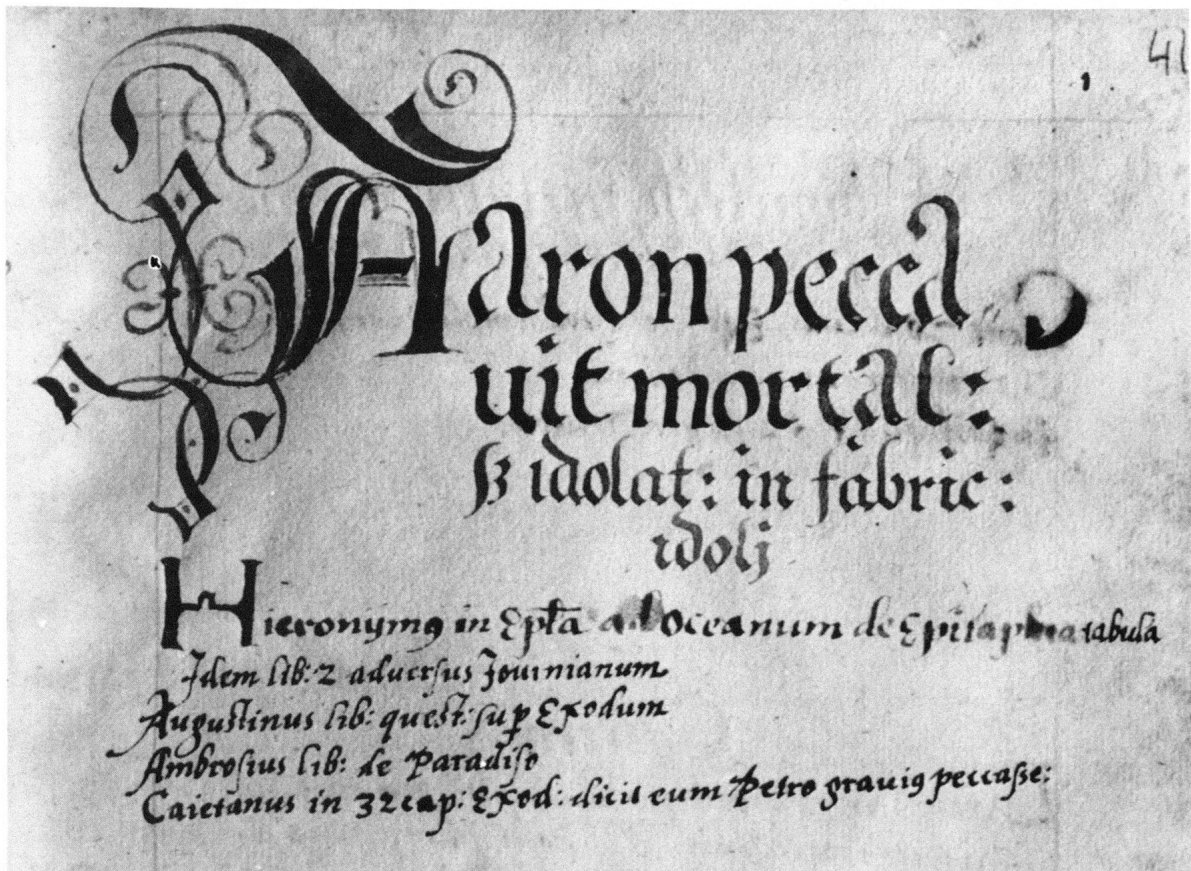 41
Aaron pecca
uit mortal:
ꝑ idolat: in fabric:
idolj
Hieronymꝰ in Epl̄a ad Oceanum de Epitaphia tabula
Idem lib: 2 adversus Jouinianum
Augustinus lib: quest: suꝑ Exodum
Ambrosius lib: de Paradiso
Caietanus in 32 cap: Exod: dicit eum Petro graviꝰ peccaſse: